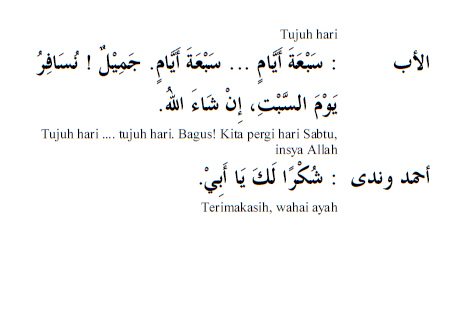 Tujuh hari
الأب : سَبْعَةَ أَيَّامٍ ... سَبْعَةَ أَيَّامٍ. جَمِيْلٌ ! نُسَافِرُ
يَوْمَ السَّبْتِ، إِنْ شَاءَ اللهُ.
Tujuh hari .... tujuh hari. Bagus! Kita pergi hari Sabtu,
insya Allah
أحمد وندى : شُكْرًا لَكَ يَا أَبِيْ.
Terimakasih, wahai ayah